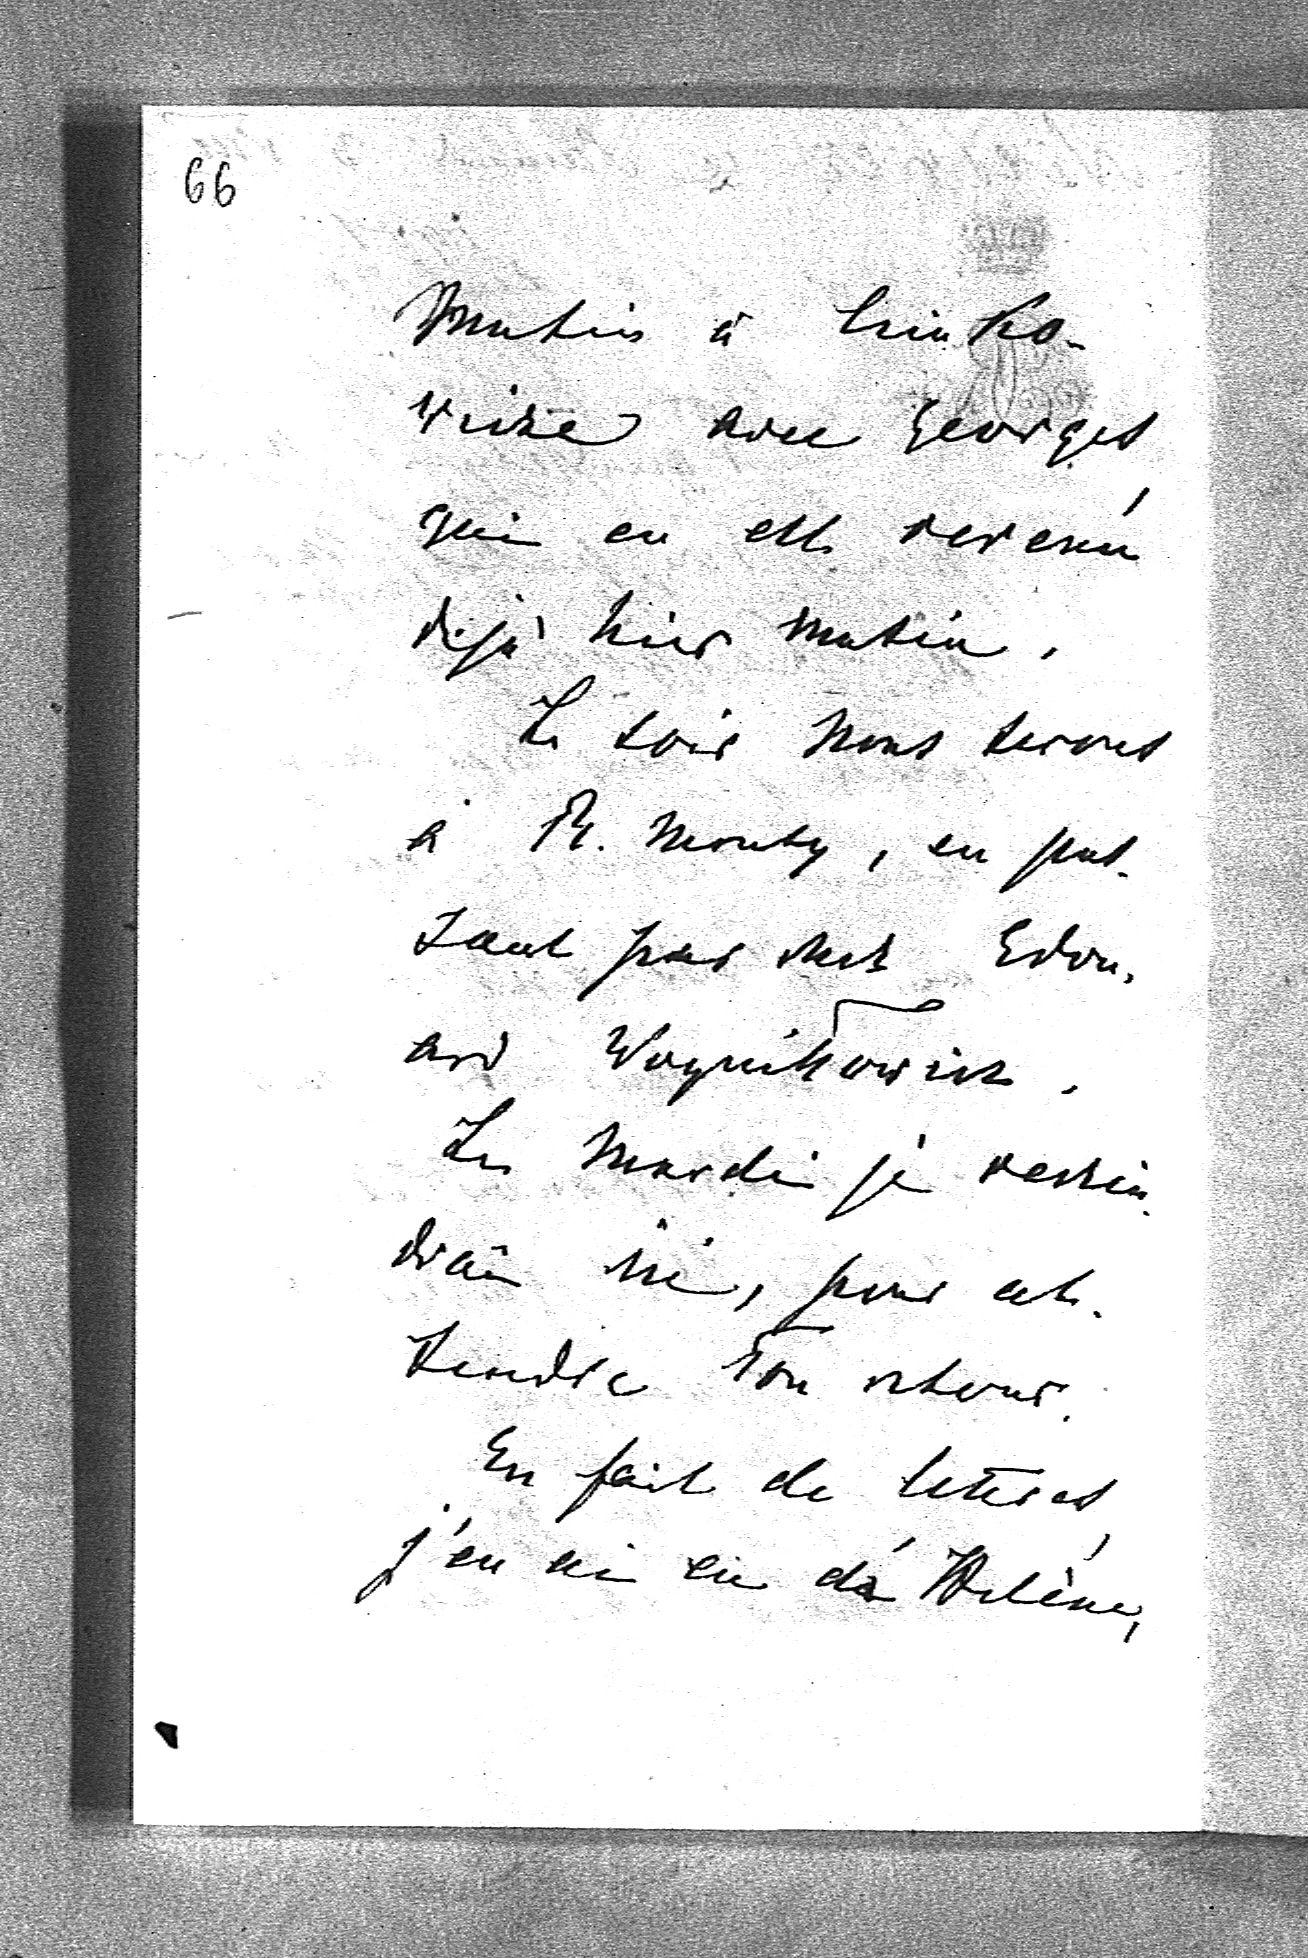 66
matin à
avec Georges
qui en est revenu
déjà hier matin.
Le soir nous serons
à R. Monty, en pas-
sant par chez Edou-
ard Woynittowicz.
Le mardi je revien-
drai ici, pour at-
tendre Ton retour.
En fait de lettres
j'en ai eu d'Hélène,